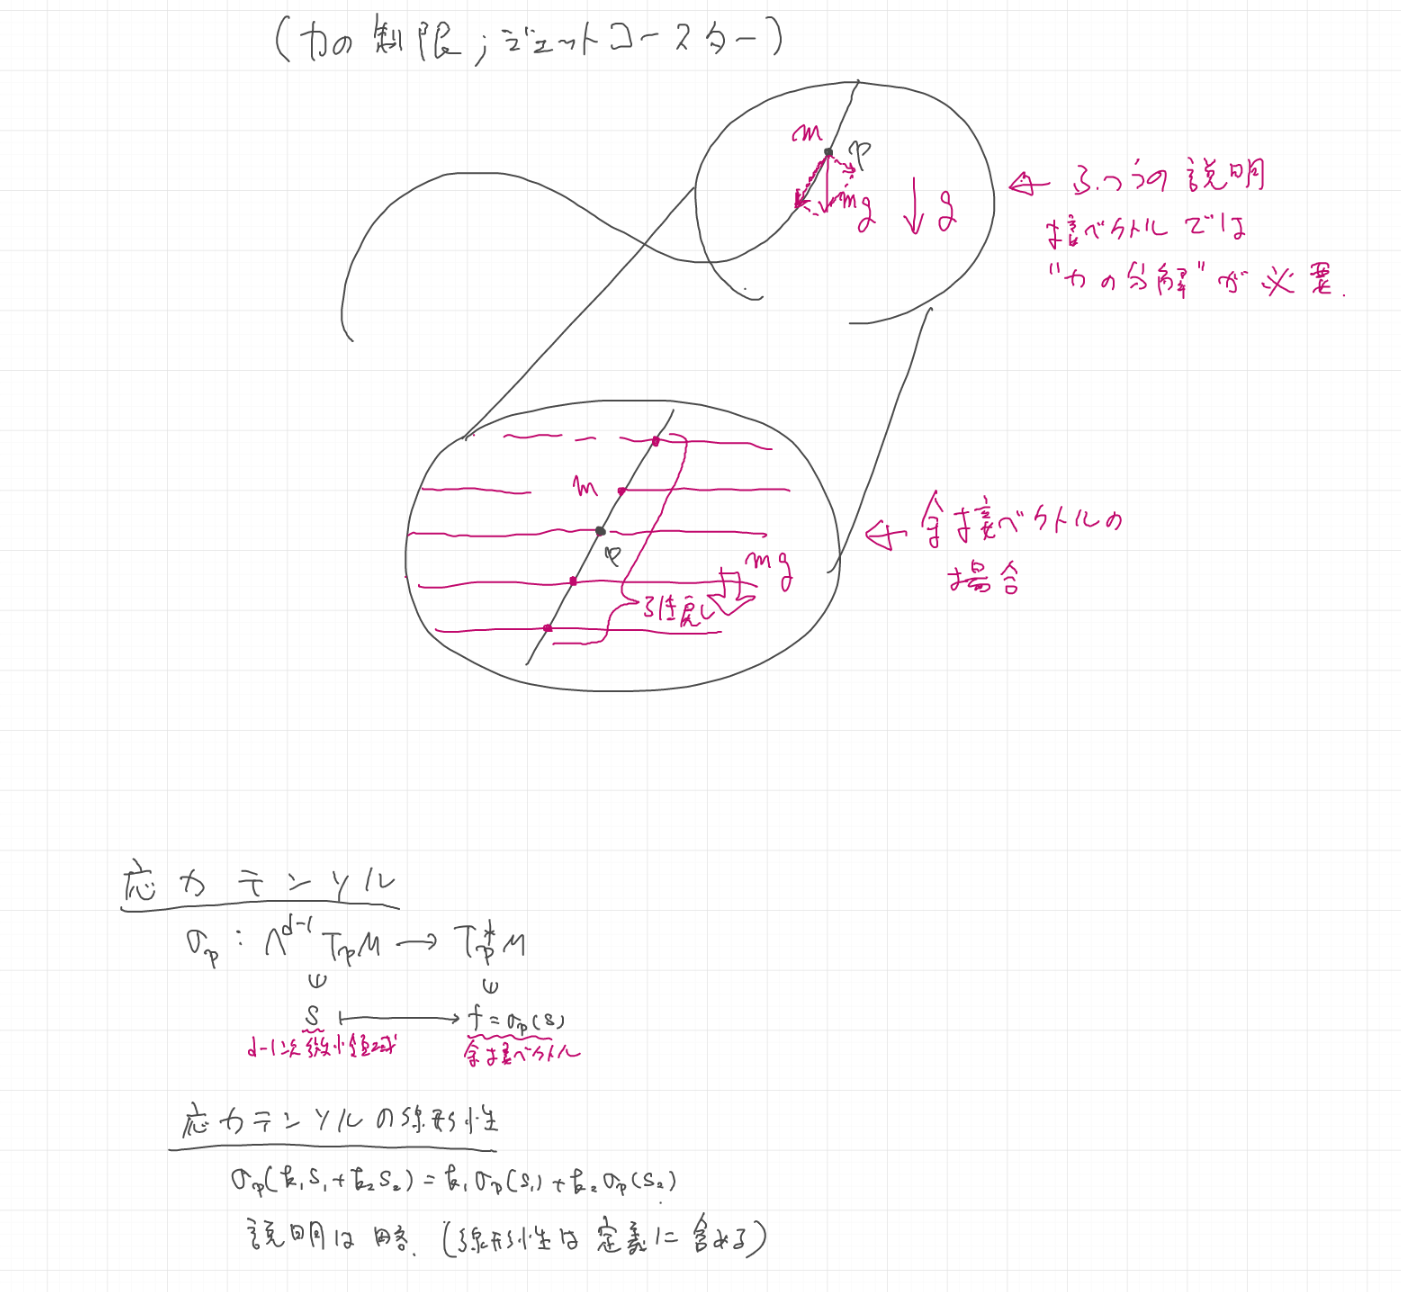 (力の制限；ジェットコースター)
m
p
mg
g
← ふつうの説明
接ベクトルでは
"力の分解"が必要.
m
p
mg
引き戻し
← 余接ベクトルの
場合
応力テンソル
σₚ : Λ^{d-1} TₚM → Tₚ*M
∈ ∈
s ↦ f = σₚ(s)
d-1次微小領域
余接ベクトル
応力テンソルの線形性
σₚ(k₁s₁ + k₂s₂) = k₁σₚ(s₁) + k₂σₚ(s₂)
説明は略. (線形性は定義に含める)